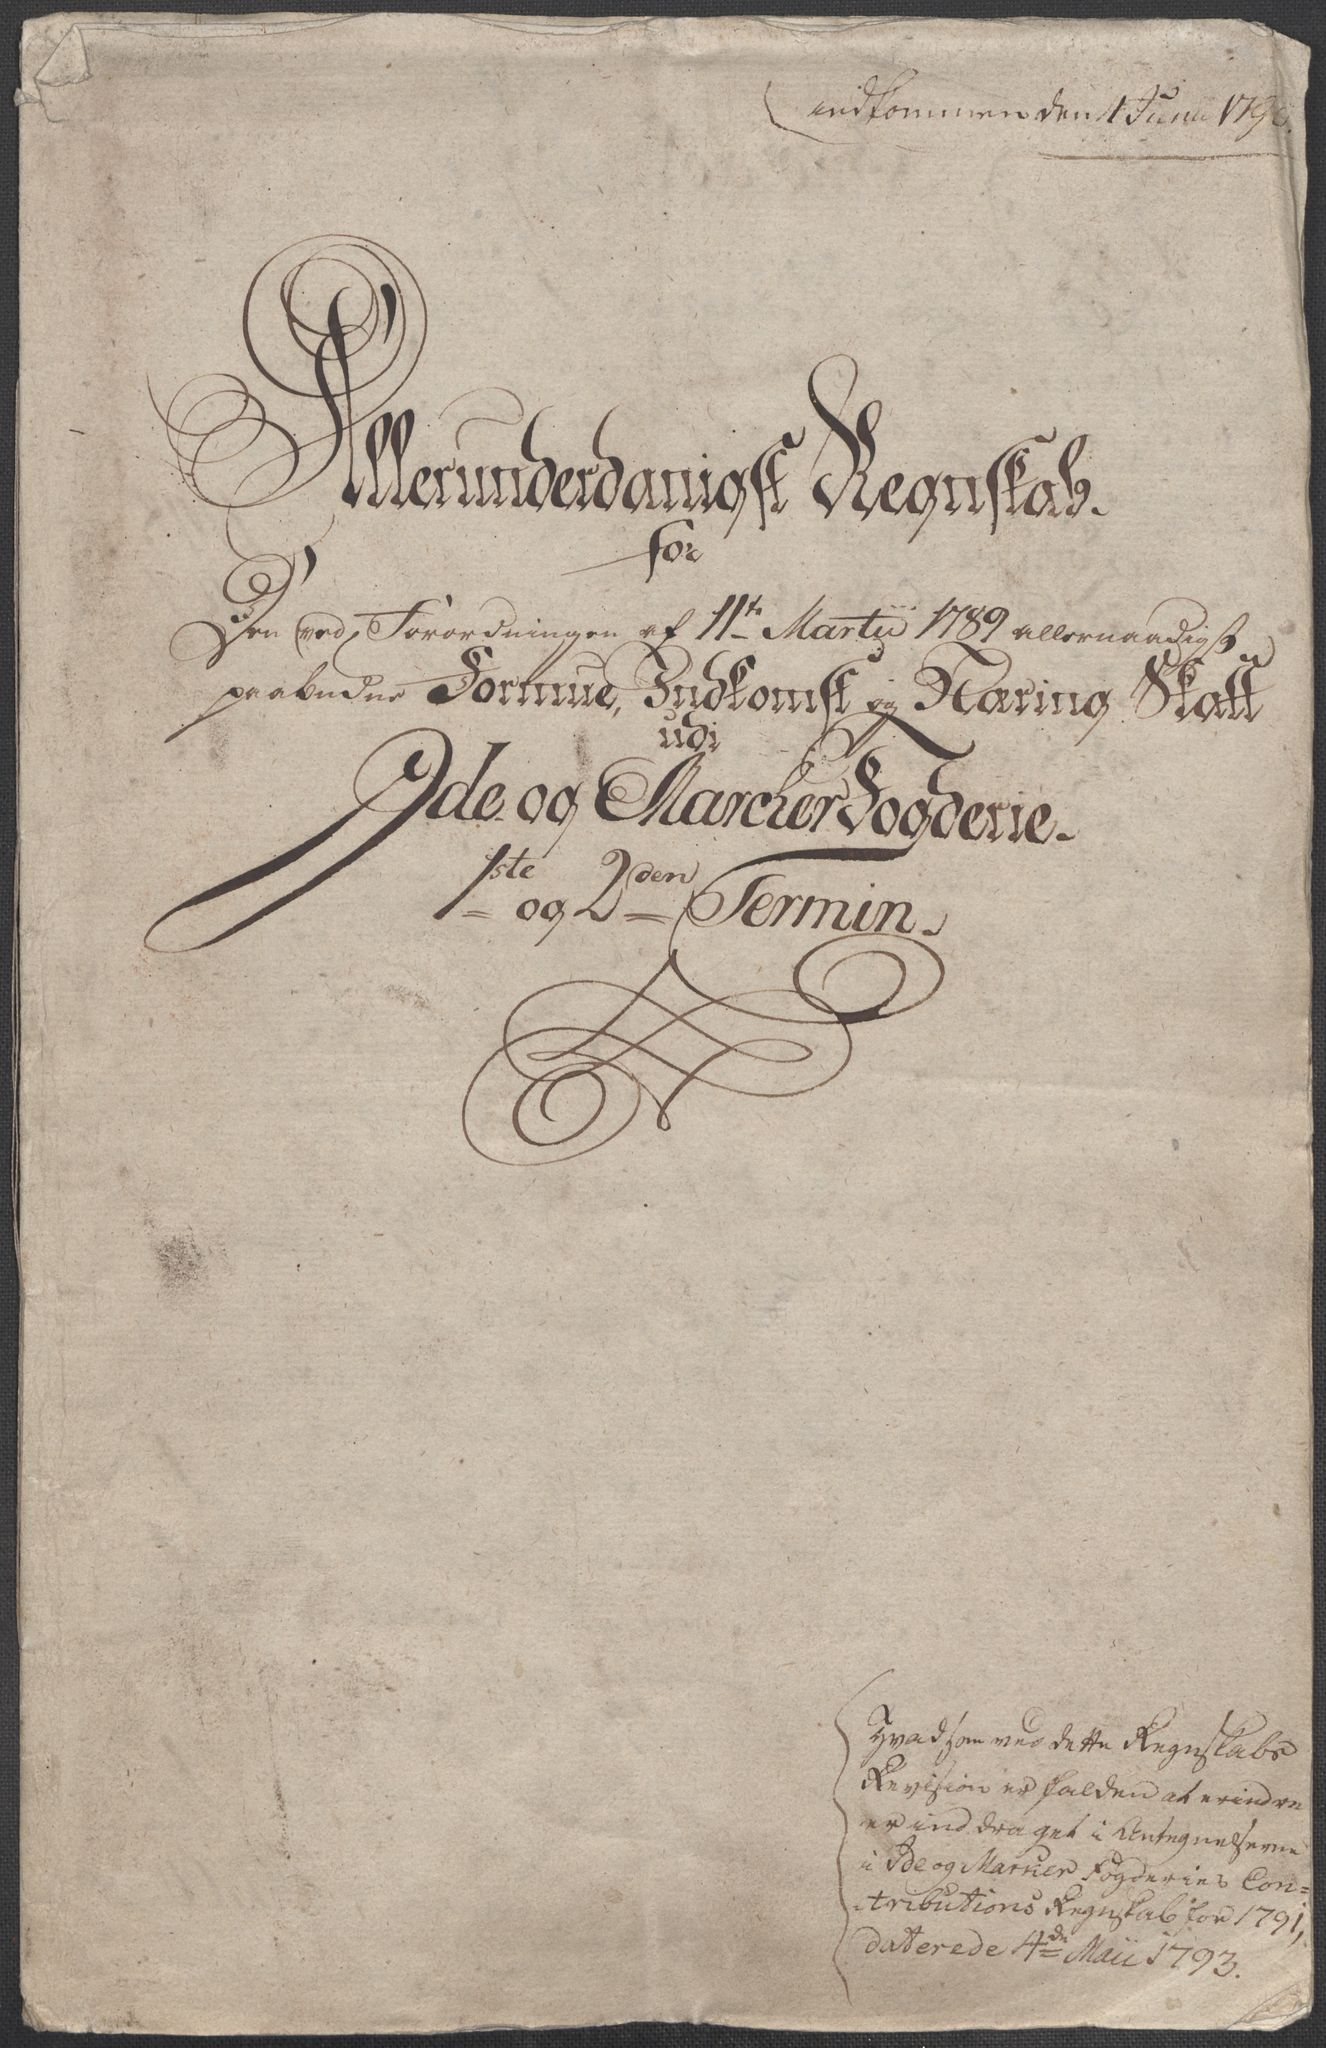 indkommen den 4 Junii 1790.
Allerunderdanigst Regnskab.
for
Den ved Forordningen af 11te Martii 1789 allernaadigst
paabudne Formue, Indkomst og Næring Skatt
udi
Ide og Marcker Fogderie.
1ste og 2den Termin.
Hvad som ved dette Regnskabs
Revision er falden at erindre
er inddraget i Antegnelserne
i Ide og Marker Fogderies Con=
tributions Regnskab for 1791,
daterede 4de Maii 1793.